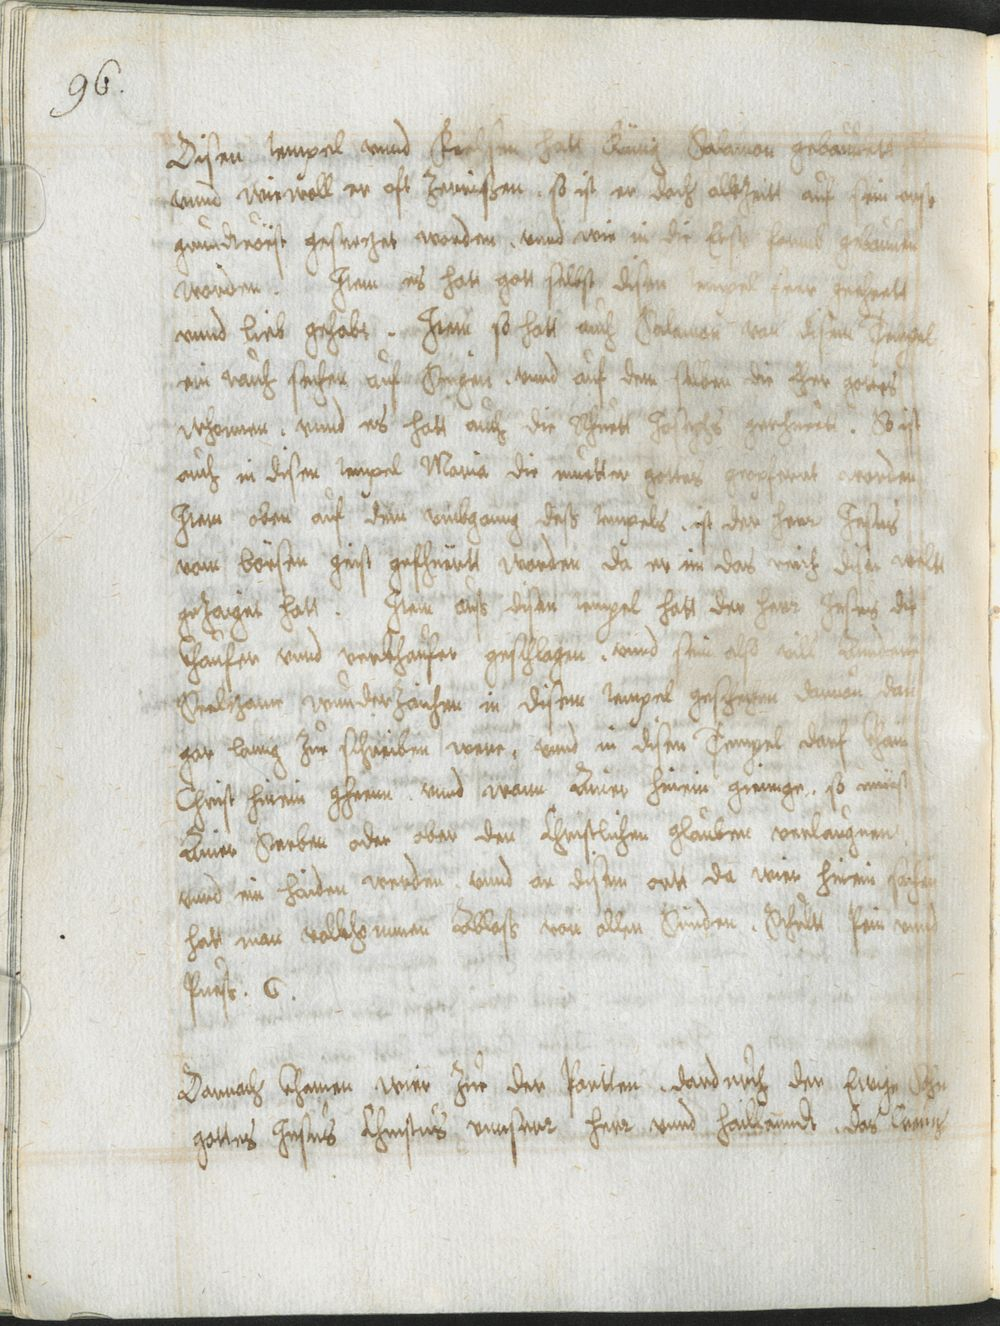 96.
Disen tempel vnnd Kirchen hatt König Salamon gebauwet
vnnd wiewoll er oft zerrissen. so ist er doch allzeitt auf sein erst
grundtvöst gesetzet worden. vnnd wie in die Erste formb gebauwen
worden. Item es hatt gott selbst disen tempel seer geehrett
vnnd lieb gehabt. Item so hatt auch Salamon von disem Tempel
ein rauch sechen auf Steigen. vnnd auf dem selben die Eher gottes
khomen. vnnd es hatt auch die Rhuett Josephs gerhuett. So ist
auch in disen tempel Maria die mutter gottes geopferet worden
Item oben auf dem vmbganng deß tempels. ist der herr Jesus
vom bössen geist gefhüertt worden da er im das reich diser weltt
gezaiget hatt. Item auß disen tempel hatt der herr Jesus die
Khaufer vnnd verkhaufer geschlagen. vnnd sein also vill Andere
Seeltzame wunderzaichen in disem tempel geschechen dauon dan
gar lanng zue schreiben were. vnnd in disen Tempel darf Khain
Christ hinein gheenn. vnnd wann Ainer hinein gienge. so muest
Ainer Sterben oder aber den Christlichen glauben verlaugnen
vnnd ein haiden werden. vnnd an disem ortt da wier hinein sachen
hatt man vollkhommen Ablaß von allen Sünden. Schultt Pein vnnd
Puess. C.
Darnach khamen wier zue der Portten. dardurch der Ewige Sohn
gottes Jesus Christus vnnserr herr vnnd hailanndt. das Creutz